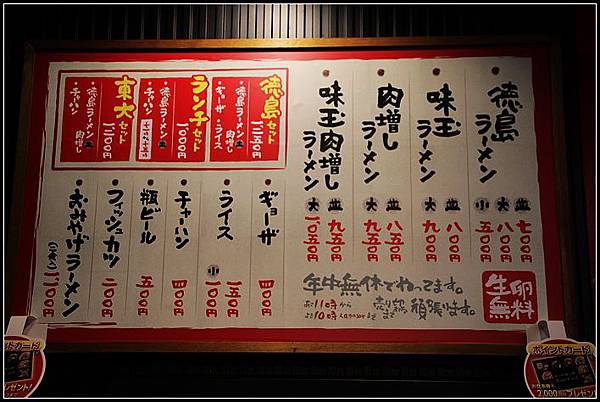 徳島ラーメン
小 五〇〇円
大 八〇〇円
並 七〇〇円
味玉ラーメン
大 九〇〇円
並 八〇〇円
肉増しラーメン
大 九五〇円
並 八五〇円
味玉肉増しラーメン
大 一〇五〇円
並 九五〇円
徳島セット
一二五〇円
・徳島ラーメン 並
肉増し
・ギョーザ
・ライス
ランチセット
一〇〇〇円
・徳島ラーメン 並
・チャーハン
東大セット
一一〇〇円
・徳島ラーメン 並
肉増し
・チャーハン
ギョーザ
四〇〇円
ライス
一五〇円
小 一〇〇円
チャーハン
四〇〇円
瓶ビール
五〇〇円
フィッシュカツ
二〇〇円
おみやげラーメン
年中無休でやってます。
あさ11時から
よる10時
売り切れまで頑張ります。
生卵無料
ポイントカード
2,000円
プレゼント!